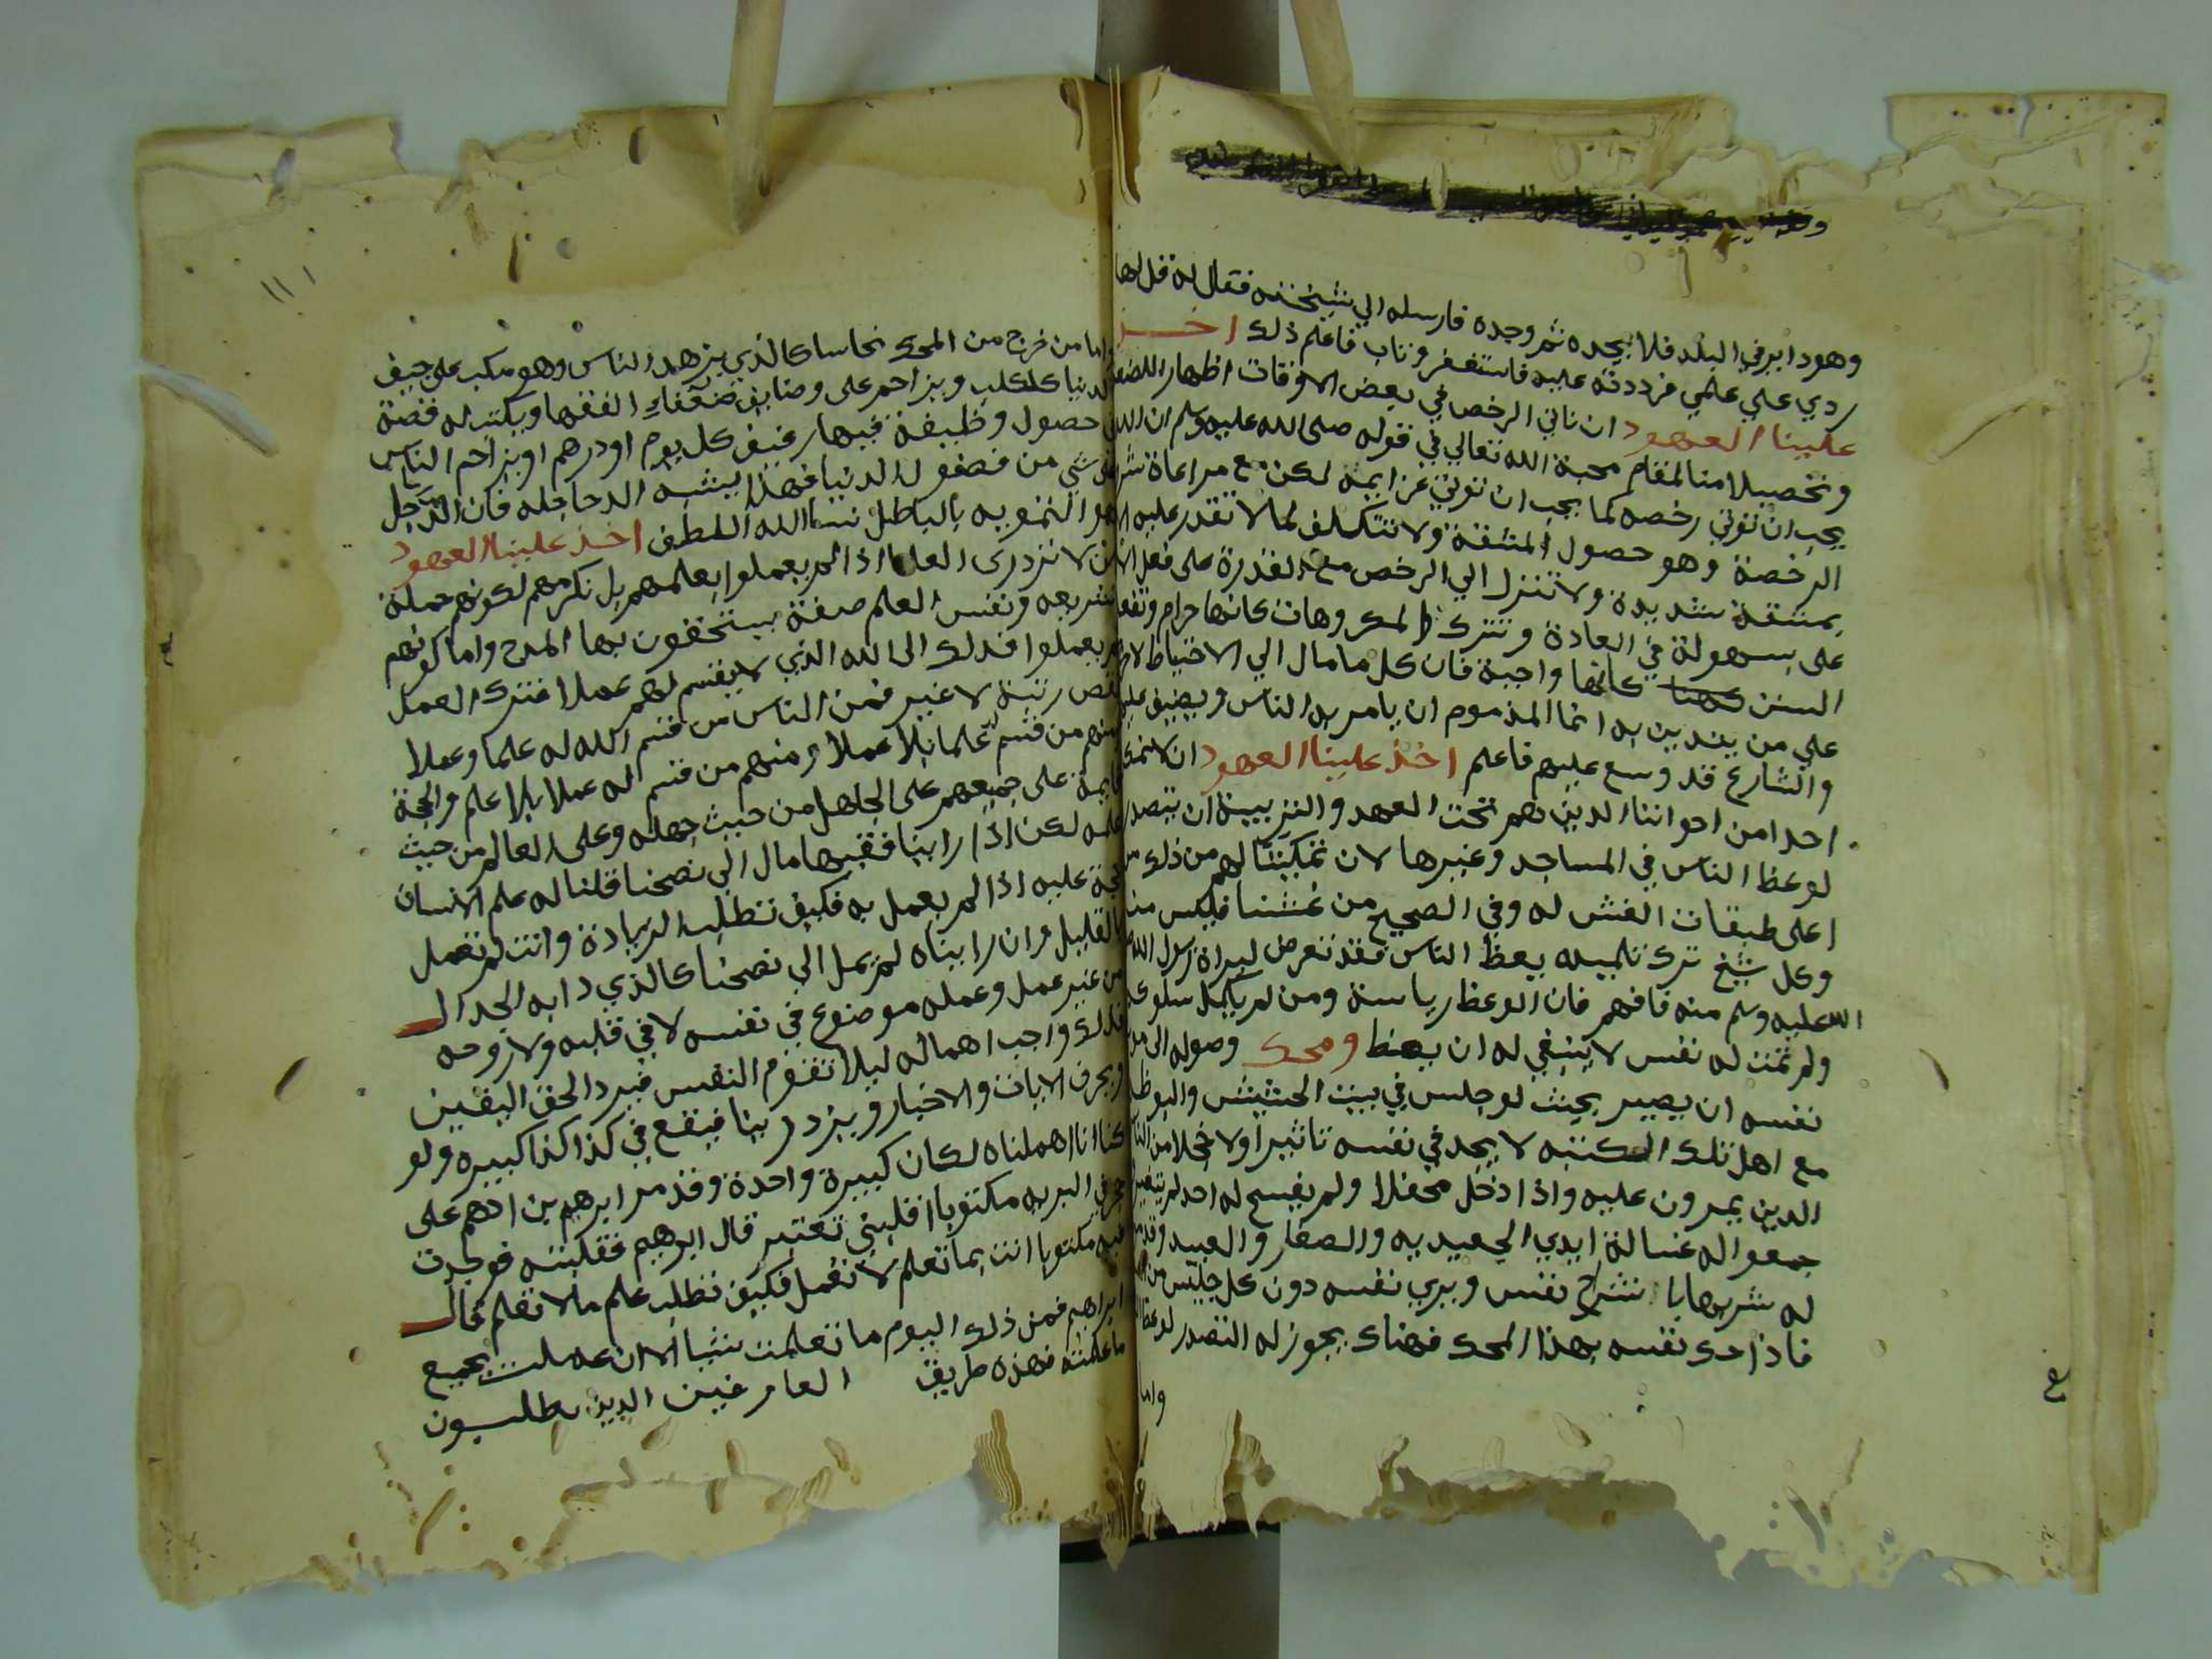 وهو داير في البلد فلا يجده ثم وجده فارسله الي شيخنه فقال له قل لها
ردي علي علمي فرددته عليه فاستغفر وتاب فاعلم ذلك اخذ
علينا العهود ان ناتي الرخص في بعض الاوقات اظهارا للضعف
وتحصيلا منا لمقام محبة الله تعالي في قوله صلى الله عليه وسلم ان الله
يحب ان توتي رخصه كما يحب ان توتي عزايمه لكن مع مراعاة شرط
الرخصة وهو حصول المشقة ولا نتكلف لما لا نقدر عليه الا
بمشقة شديدة ولا نتنزل الي الرخص مع القدرة على فعل
على سهولة في العادة ونترك المكروهات كانها حرام ونفعل
السنن كانها واجبة فان كل ما مال الي الاحتياط
علي من يتدين به انما المذموم ان يامر به الناس ويضيق عليهم
والشارع قد وسع عليهم فاعلم اخذ علينا العهود ان لا نمكن
احدا من اخواننا الذين هم تحت العهد والتربية ان يتصدر
لوعظ الناس في المساجد وغيرها لان تمكيننا لهم من ذلك من
اعلى طبقات الغش له وفي الصحيح من غشنا فليس منا
وكل شيخ ترك تلميذه يعظ الناس فقد تعرض لبراة رسول الله صلى
الله عليه وسلم منه فافهم فان الوعظ رياسة ومن لم يكمل سلوكه
ولم تمت له نفس لا ينبغي له ان يعظ ومحك وصوله الى موت
نفسه ان يصير بحيث لو جلس في بيت الحشيش والبوظة
مع اهل تلك الكتبه لا يجد في نفسه تاثيرا ولا خجلا من الناس
الذين يمرون عليه واذا دخل محفلا ولم يفسح له احد لم يتغير
جمعوا له غسالة ايدي الجعيديه والصغار والعبيد
له شربها بانشراح نفس ويري نفسه دون كل جليس من
فاذا حك نفسه بهذا المحك فهناك يجوز له التصدر لوعظ
واما
١١١
واما من خرج من المحك نحاسا كالذي يزهد الناس وهو مكب على جيف
الدنيا كالكلب ويزاحم على وضايف ضعفاء الفقها ويكتب له قصة
في حصول وظيفة فيها رغيف كل يوم او درهم او يزاحم الناس
في شي من فضول الدنيا فهذا يشبه الدجاجله فان الدجل
هو التمويه بالباطل نسال الله اللطف اخذ علينا العهود
ان لا نزدري العلما اذا لم يعملوا بعلمهم بل نكرمهم لكونهم حملة
الشريعه ونفس العلم صفة يستحقون بها المدح واما كونهم
لم يعملوا فذلك الى الله الذي لا يقسم لهم عملا فترك العمل
نقص رتبة لا غير فمن الناس من قسم الله له علما وعملا
ومنهم من قسم له علما بلا عملا ومنهم من قسم له عملا بلا علم والحجة
قايمة على جميعهم على الجاهل من حيث جهله وعلى العالم من حيث
علمه لكن اذا راينا فقيها مال الى نصحنا قلنا له علم الانسان
حجة عليه اذا لم يعمل به فكيف تطلب الزيادة وانت لم تعمل
بالقليل وان رايناه لم يمل الي نصحنا كالذي دابه الجدال
من غير عمل وعمله موضوع في نفسه لا في قلبه ولا روحه
فذلك واجب اهماله ليلا تقوم النفس فيرد الحق اليقين
ويحرف الايات والاخبار ويزدرينا فيقع في كذا كذا كبيره ولو
كنا انا اهملناه لكان كبيرة واحدة وقد مر ابرهيم بن ادهم على
حجر في البريه مكتوبا اقلبني تعتبر قال ابرهيم فقلبته فوجدت
فيه مكتوبا انت بما تعلم لا تعمل فكيف تطلب علم ما لا تعلم قال
ابراهيم فمن ذلك اليوم ما تعلمت شيا الا ان عملت بجميع
ما علمته فهذه طريق العارفين الذين يطلبون